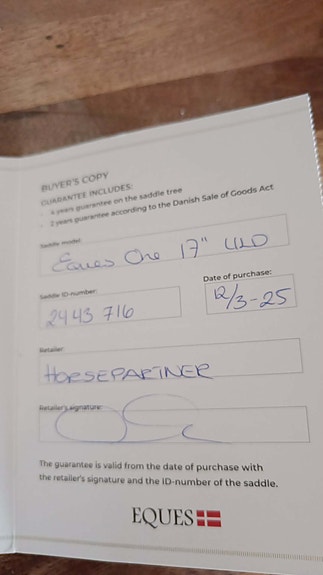 BUYER'S COPY
GUARANTEE INCLUDES:
- 4 years guarantee on the saddle tree
- 2 years guarantee according to the Danish Sale of Goods Act
Saddle model:
Eques One 17"
Saddle ID-number:
2443 716
Date of purchase:
12/3-25
Retailer:
HORSEPARTNER
Retailer's signature:
The guarantee is valid from the date of purchase with
the retailer's signature and the ID-number of the saddle.
EQUES